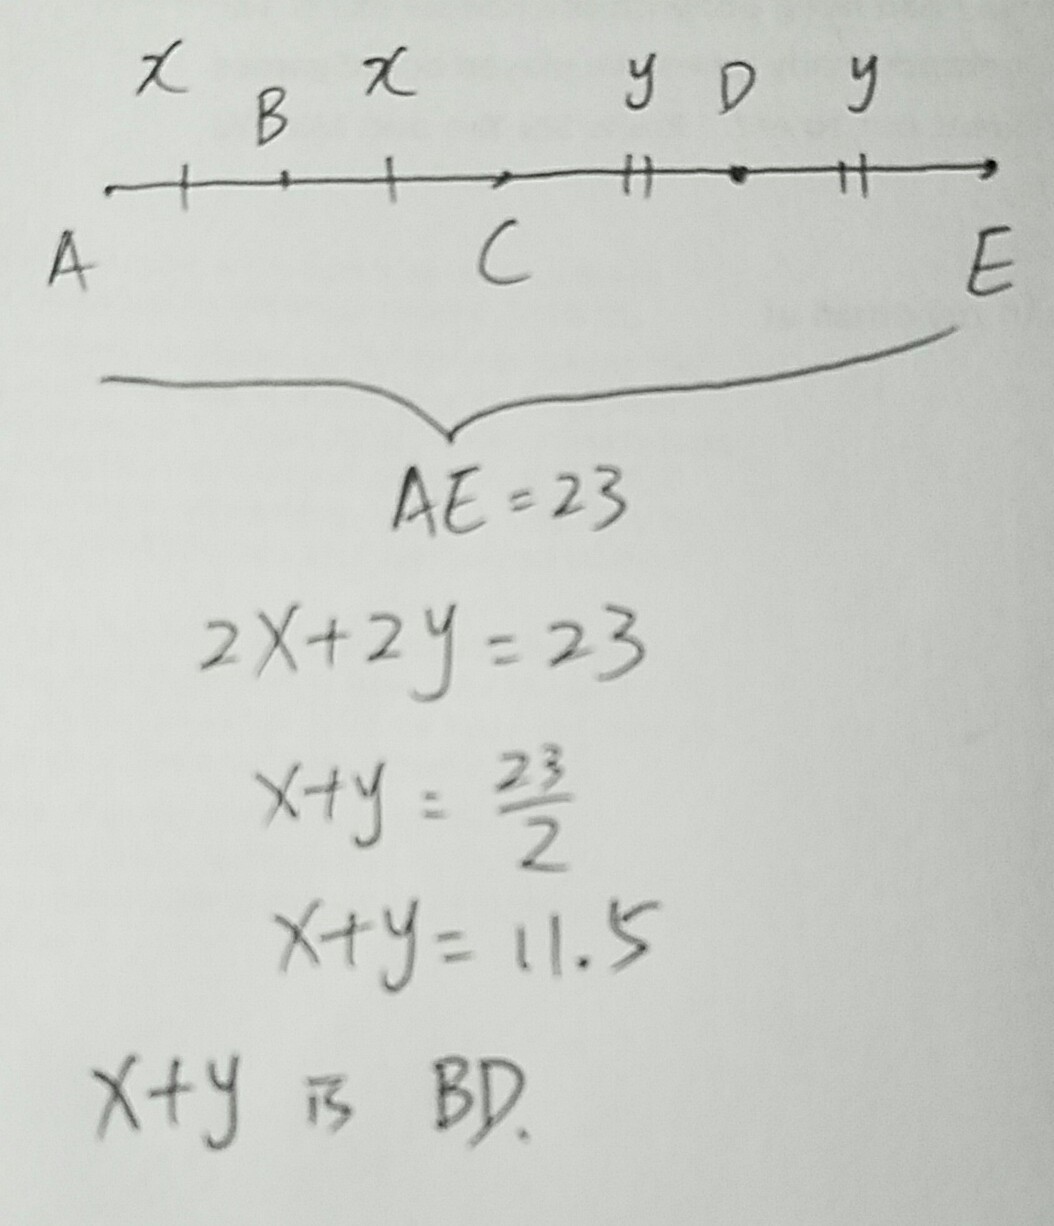 x B x y D y
A C E
AE = 23
2x+2y = 23
x+y = 23/2
x+y = 11.5
x+y is BD.